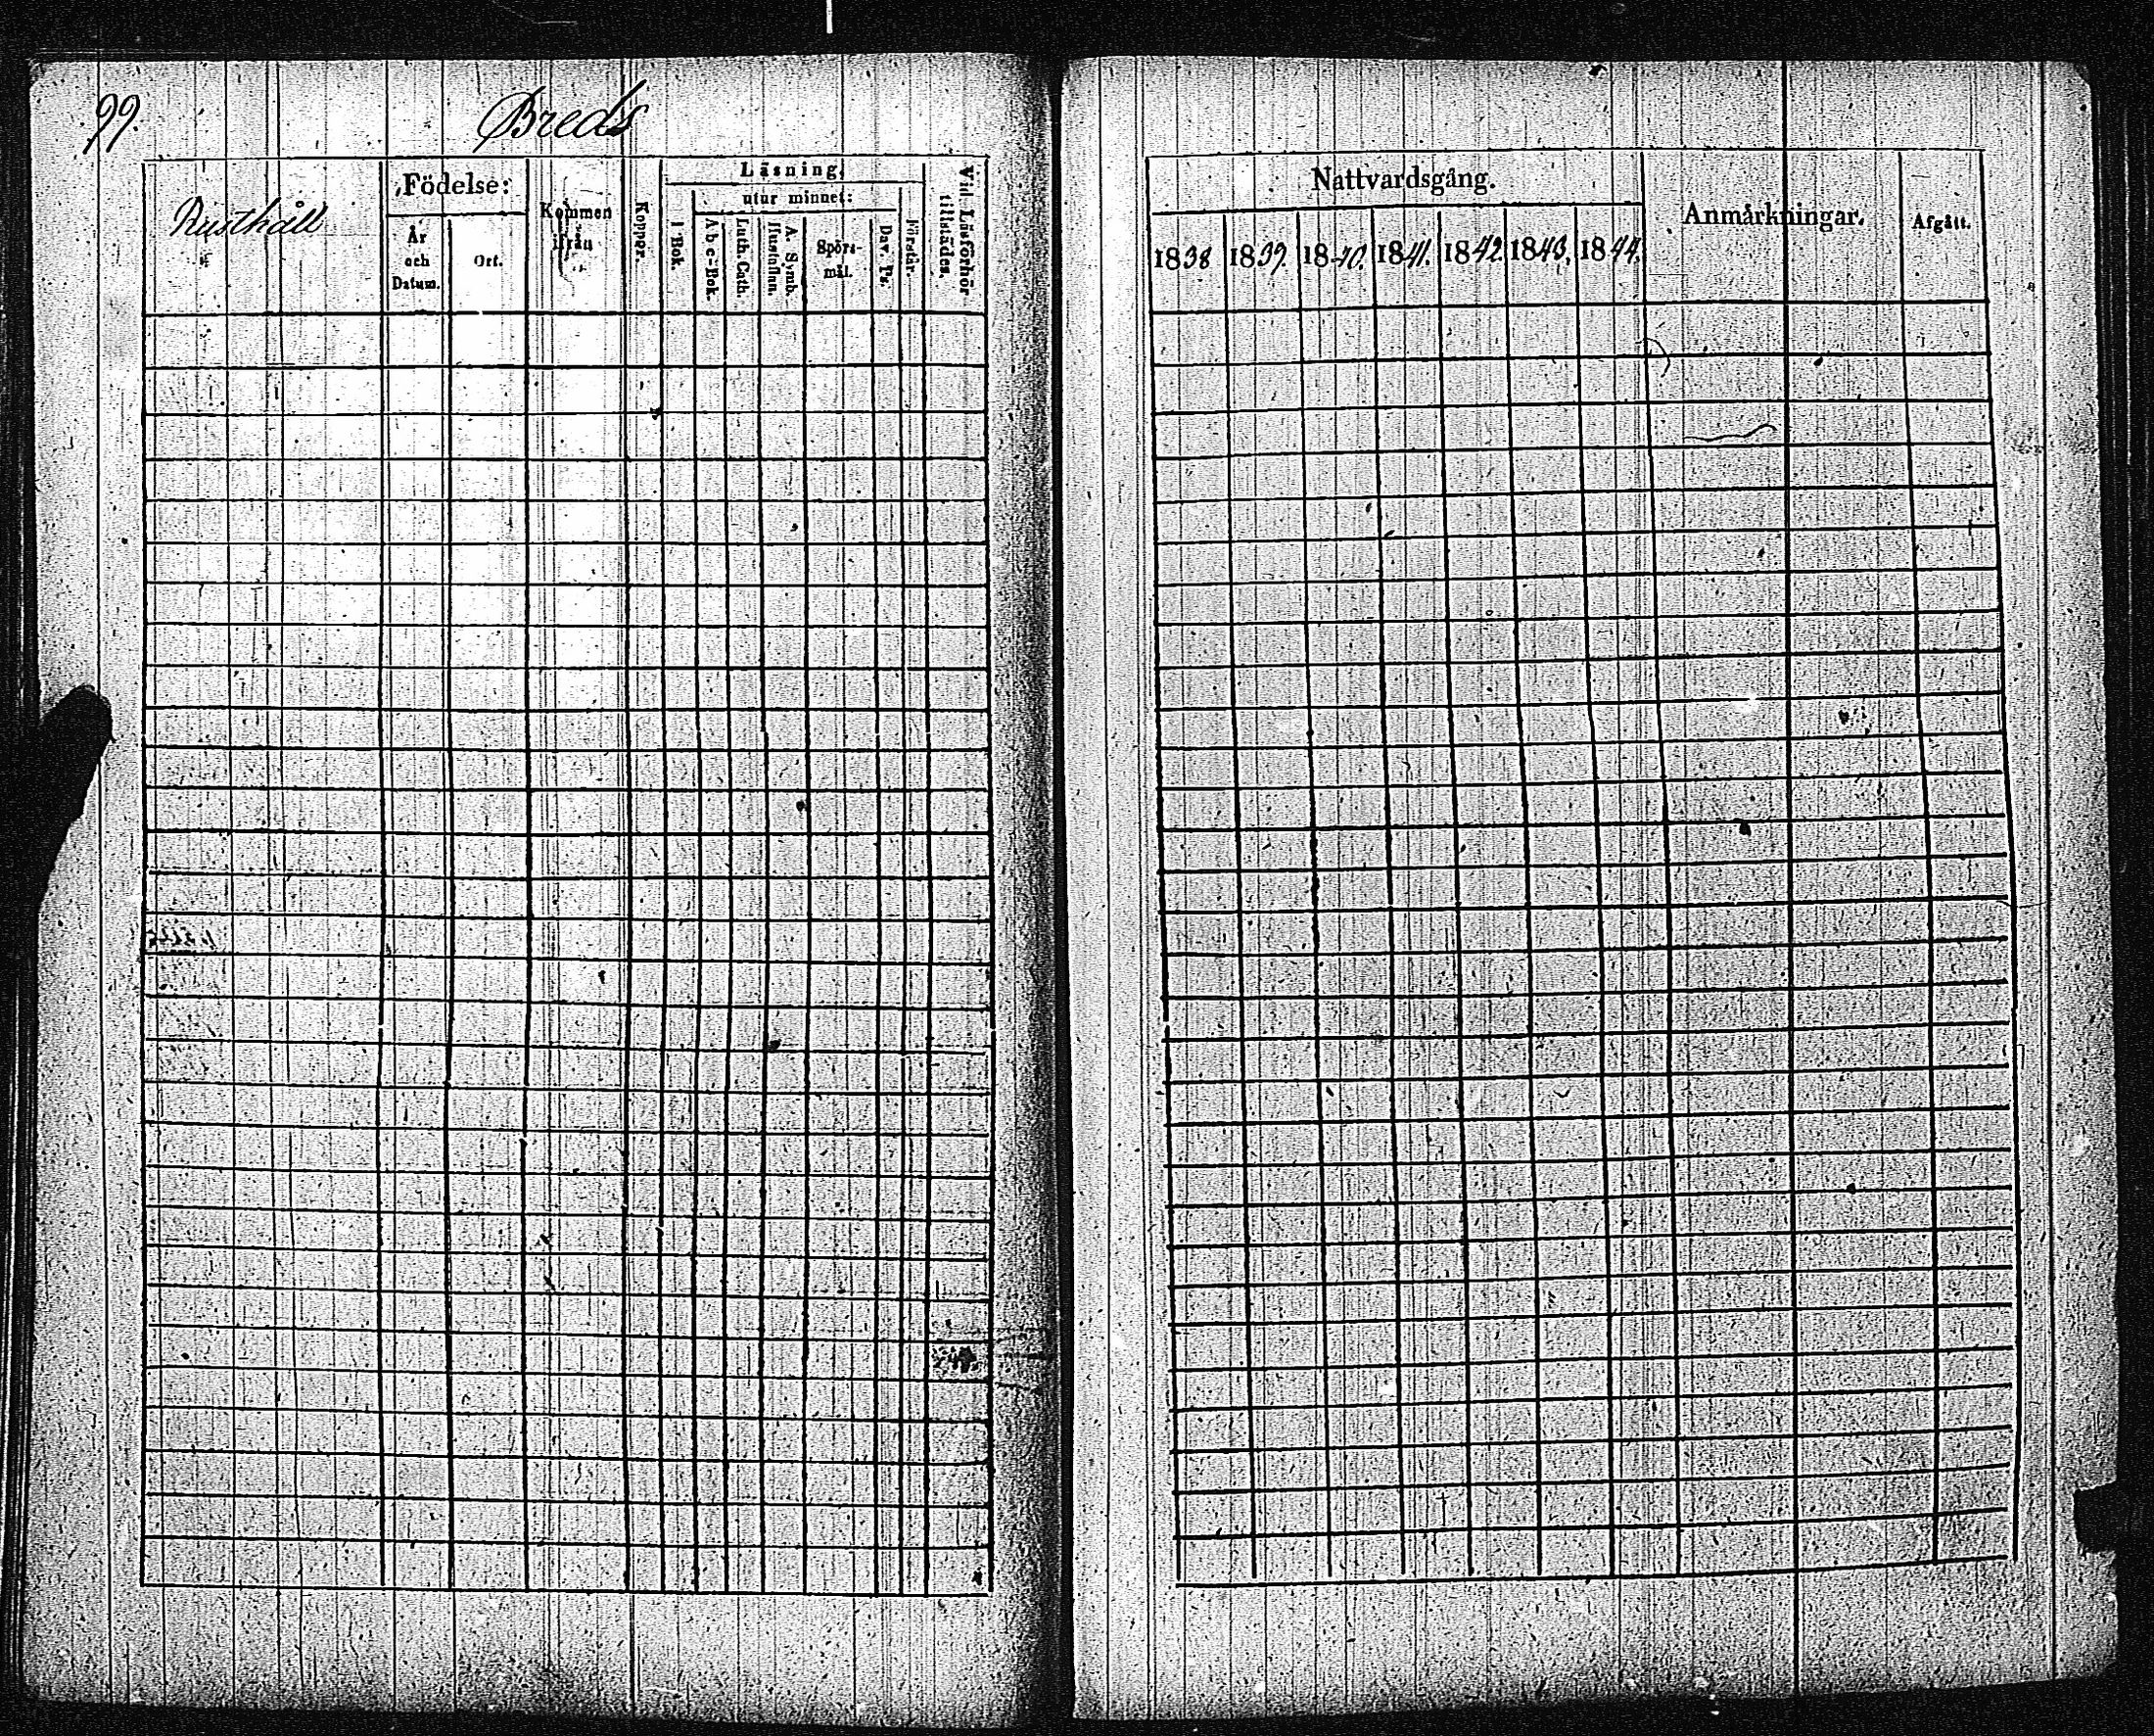 99.
Breds
Rusthåll
Födelse:
År
och
Datum.
Ort.
Kommen
ifrån
Koppor.
Läsning,
utur minnet:
I Bok.
A b c-Bok.
Luth. Cath.
A. Symb.
Hustaflan.
Spörs-
mål.
Dav. Ps.
Förstår.
Vid Läsförhör
tillstädes.
Nattvardsgång.
1838
1839.
1840.
1841.
1842.
1843.
1844.
Anmärkningar.
Afgått.